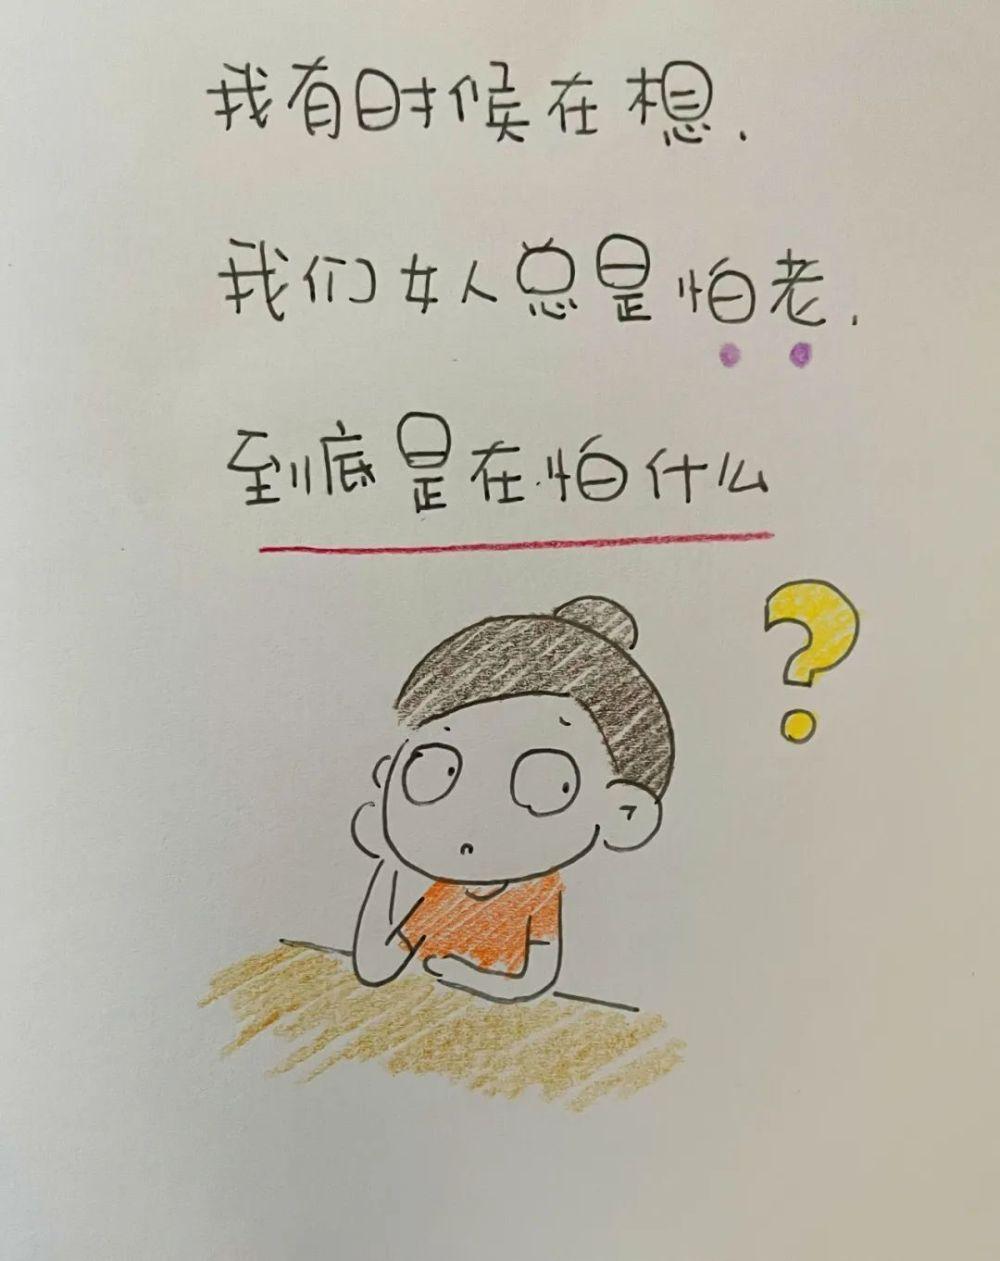 我有时候在想.
我们女人总是怕老.
到底是在怕什么
?